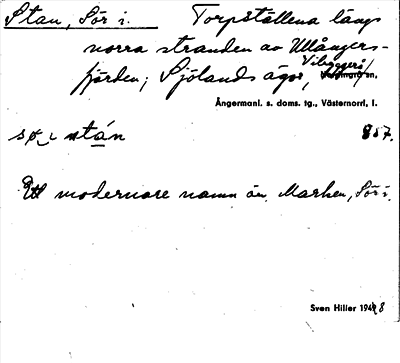 Stan, Sör i. Torpställena längs
norra stranden av Ullångers-
fjärden; Sjölands ägor, Vibyggerå
Nordingrå sn,
Ångermanl. s. doms. tg., Västernorrl. l.
sø̜ i stán 857.
Ett modernare namn än Marken, Sör i.
Sven Hiller 1948